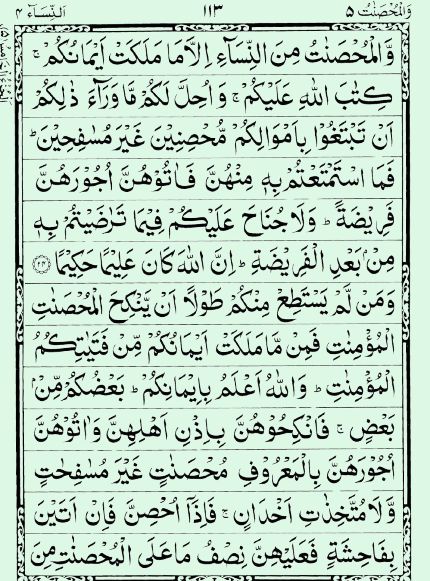 وَالْمُحْصَنٰتُ ۵ ۱۱۳ اَلنِّسَآءِ ۴
وَّالْمُحْصَنٰتُ مِنَ النِّسَآءِ اِلَّا مَا مَلَكَتْ اَيْمَانُكُمْ ۚ
كِتٰبَ اللّٰهِ عَلَيْكُمْ ۚ وَاُحِلَّ لَكُمْ مَّا وَرَآءَ ذٰلِكُمْ
اَنْ تَبْتَغُوْا بِاَمْوَالِكُمْ مُّحْصِنِيْنَ غَيْرَ مُسٰفِحِيْنَ ؕ
فَمَا اسْتَمْتَعْتُمْ بِهٖ مِنْهُنَّ فَاٰتُوْهُنَّ اُجُوْرَهُنَّ
فَرِيْضَةً ؕ وَلَا جُنَاحَ عَلَيْكُمْ فِيْمَا تَرٰضَيْتُمْ بِهٖ
مِنْۢ بَعْدِ الْفَرِيْضَةِ ؕ اِنَّ اللّٰهَ كَانَ عَلِيْمًا حَكِيْمًا ﴿۲۴﴾
وَمَنْ لَّمْ يَسْتَطِعْ مِنْكُمْ طَوْلًا اَنْ يَّنْكِحَ الْمُحْصَنٰتِ
الْمُؤْمِنٰتِ فَمِنْ مَّا مَلَكَتْ اَيْمَانُكُمْ مِّنْ فَتَيٰتِكُمُ
الْمُؤْمِنٰتِ ؕ وَاللّٰهُ اَعْلَمُ بِاِيْمَانِكُمْ ؕ بَعْضُكُمْ مِّنْۢ
بَعْضٍ ۚ فَانْكِحُوْهُنَّ بِاِذْنِ اَهْلِهِنَّ وَاٰتُوْهُنَّ
اُجُوْرَهُنَّ بِالْمَعْرُوْفِ مُحْصَنٰتٍ غَيْرَ مُسٰفِحٰتٍ
وَّلَا مُتَّخِذٰتِ اَخْدَانٍ ۚ فَاِذَاۤ اُحْصِنَّ فَاِنْ اَتَيْنَ
بِفَاحِشَةٍ فَعَلَيْهِنَّ نِصْفُ مَا عَلَى الْمُحْصَنٰتِ مِنَ